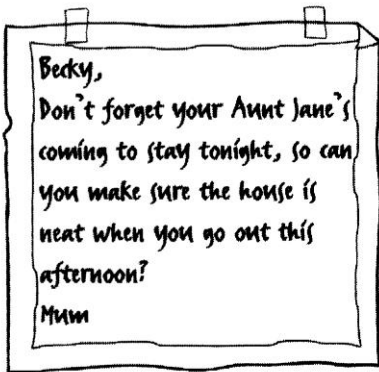 Becky,
Don't forget your Aunt Jane's
coming to stay tonight, so can
you make sure the house is
neat when you go out this
afternoon?
Mum